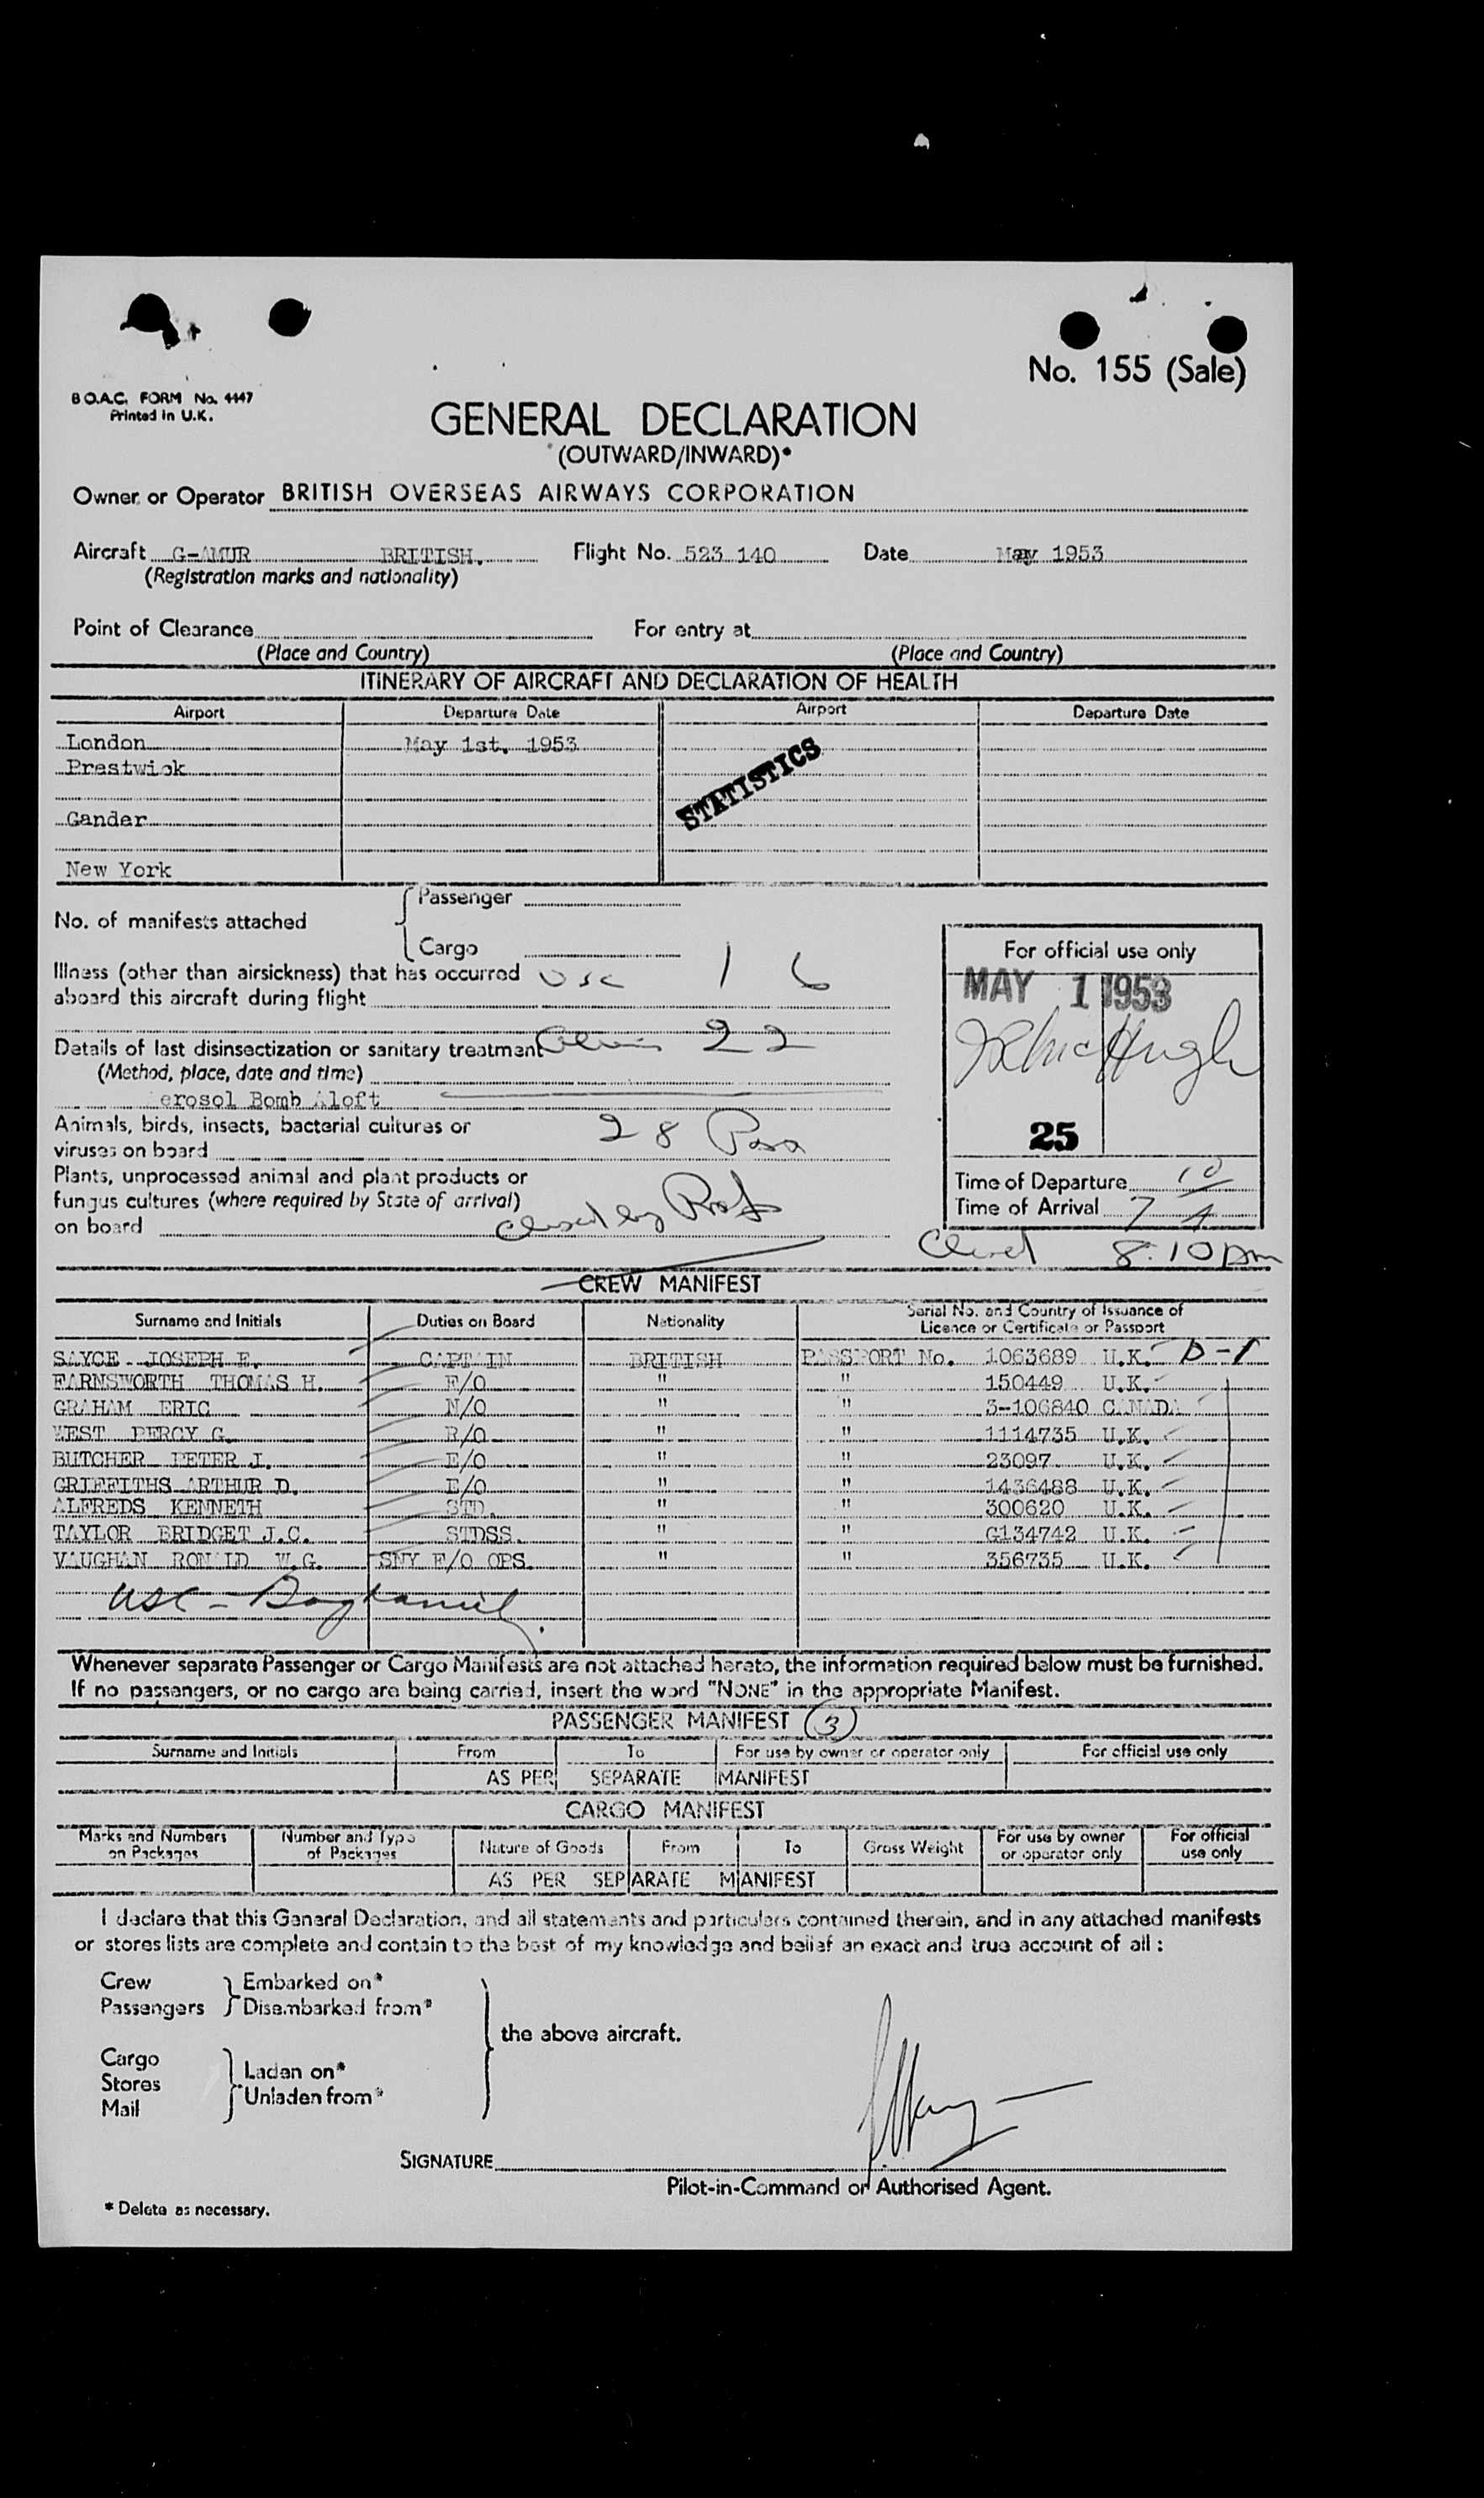 No. 155 (Sale)
B.O.A.C. FORM No. 4447
Printed in U.K.
GENERAL DECLARATION
(OUTWARD/INWARD)*
Owner or Operator BRITISH OVERSEAS AIRWAYS CORPORATION
Aircraft G-AMUR BRITISH. Flight No. 523 140 Date May 1953
(Registration marks and nationality)
Point of Clearance For entry at
(Place and Country) (Place and Country)
ITINERARY OF AIRCRAFT AND DECLARATION OF HEALTH
Airport Departure Date Airport Departure Date
London May 1st. 1953
Prestwick
STATISTICS
Gander
New York
Passenger
No. of manifests attached
Cargo
For official use only
Illness (other than airsickness) that has occurred USC 1 6
MAY 1 1953
aboard this aircraft during flight
Details of last disinsectization or sanitary treatment Aliens 22
(Method, place, date and time)
erosol Bomb Aloft
Animals, birds, insects, bacterial cultures or 28 Pass
25
viruses on board
Plants, unprocessed animal and plant products or
Time of Departure 10
fungus cultures (where required by State of arrival)
Time of Arrival 7
on board
8.10 pm
CREW MANIFEST
Surname and Initials Duties on Board Nationality Serial No. and Country of Issuance of Licence or Certificate or Passport
SAYCE JOSEPH E. CAPTAIN BRITISH PASSPORT No. 1063689 U.K. D-1
FARNSWORTH THOMAS H. F/O " " 150449 U.K.
GRAHAM ERIC N/O " " 3-106840 CANADA
WEST PERCY G. R/O " " 1114735 U.K.
BUTCHER PETER J. E/O " " 23097 U.K.
GRIFFITHS ARTHUR D. E/O " " 1436488 U.K.
ALFREDS KENNETH STD. " " 300620 U.K.
TAYLOR BRIDGET J.C. STDSS. " " G134742 U.K.
VAUGHAN RONALD W.G. SNY F/O OPS. " " 356735 U.K.
USC -
Whenever separate Passenger or Cargo Manifests are not attached hereto, the information required below must be furnished.
If no passengers, or no cargo are being carried, insert the word "NONE" in the appropriate Manifest.
PASSENGER MANIFEST 3
Surname and Initials From To For use by owner or operator only For official use only
AS PER SEPARATE MANIFEST
CARGO MANIFEST
Marks and Numbers on Packages Number and Type of Packages Nature of Goods From To Gross Weight For use by owner or operator only For official use only
AS PER SEPARATE MANIFEST
I declare that this General Declaration, and all statements and particulars contained therein, and in any attached manifests
or stores lists are complete and contain to the best of my knowledge and belief an exact and true account of all :
Crew Embarked on*
Passengers Disembarked from*
the above aircraft.
Cargo
Laden on*
Stores
Unladen from*
Mail
SIGNATURE
Pilot-in-Command or Authorised Agent.
* Delete as necessary.